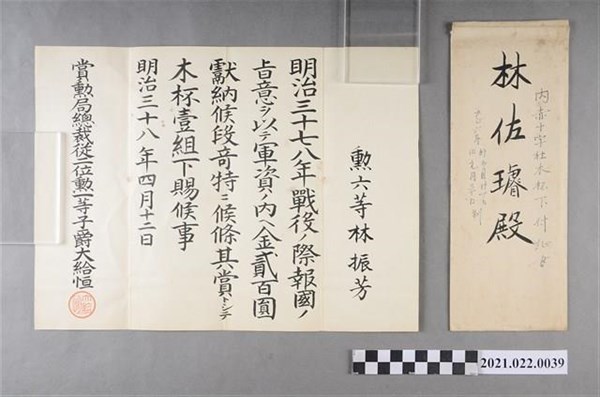 勲六等林振芳
明治三十七八年戰後ノ際報國ノ
旨意ヲ以テ軍資ノ内ヘ金貳百圓
獻納候段竒特ニ候條其賞トシテ
木杯壹組下賜候事
明治三十八年四月十二日
賞勲局總裁從二位勲一等子爵大給恒
林佐璿殿
内赤十字社木杯下付
2021.022.0039